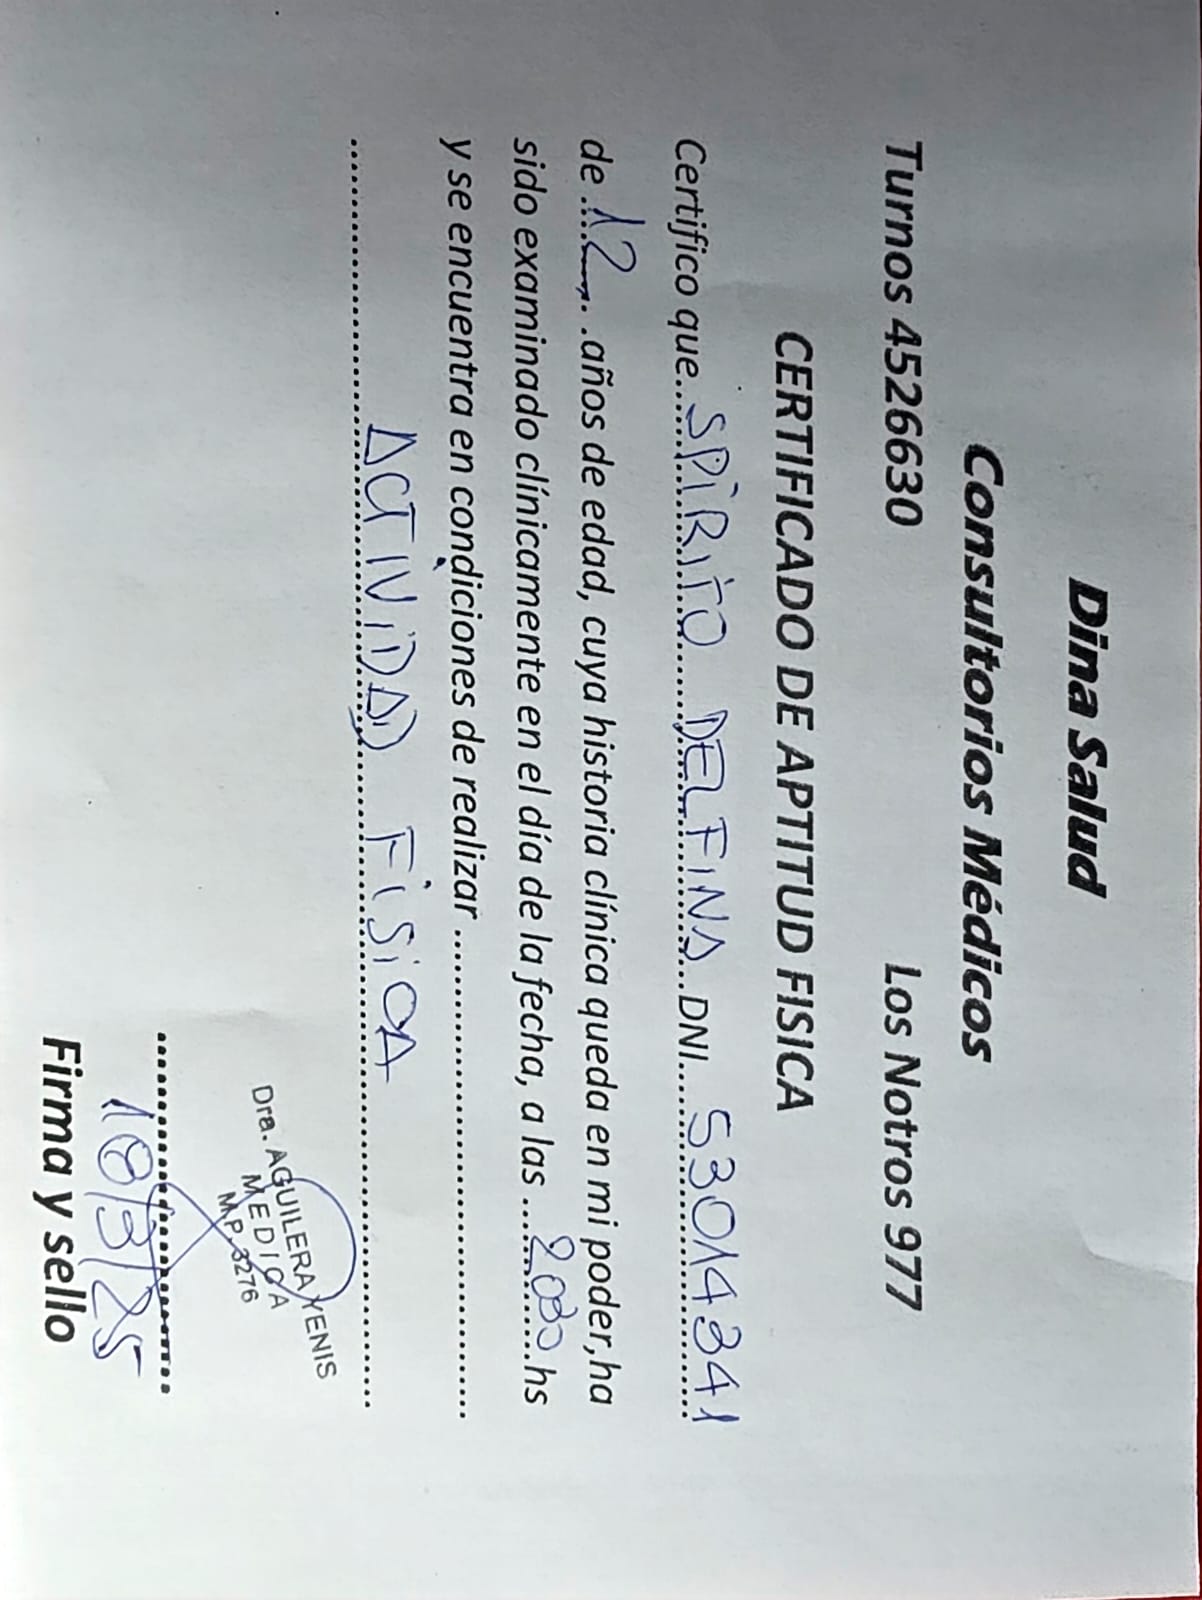 Dina Salud
Consultorios Médicos
Turnos 4526630 Los Notros 977
CERTIFICADO DE APTITUD FISICA
Certifico que..... SPIRITO DELFINA ..... DNI..... 53014341 .....
de ... 12 ... años de edad, cuya historia clínica queda en mi poder,ha
sido examinado clínicamente en el día de la fecha, a las ..... 2030 ..... hs
y se encuentra en condiciones de realizar ..........
..... ACTIVIDAD FISICA .....
Dra. AGUILERA YENIS
MEDICA
M.P. 3276
18/3/25
Firma y sello